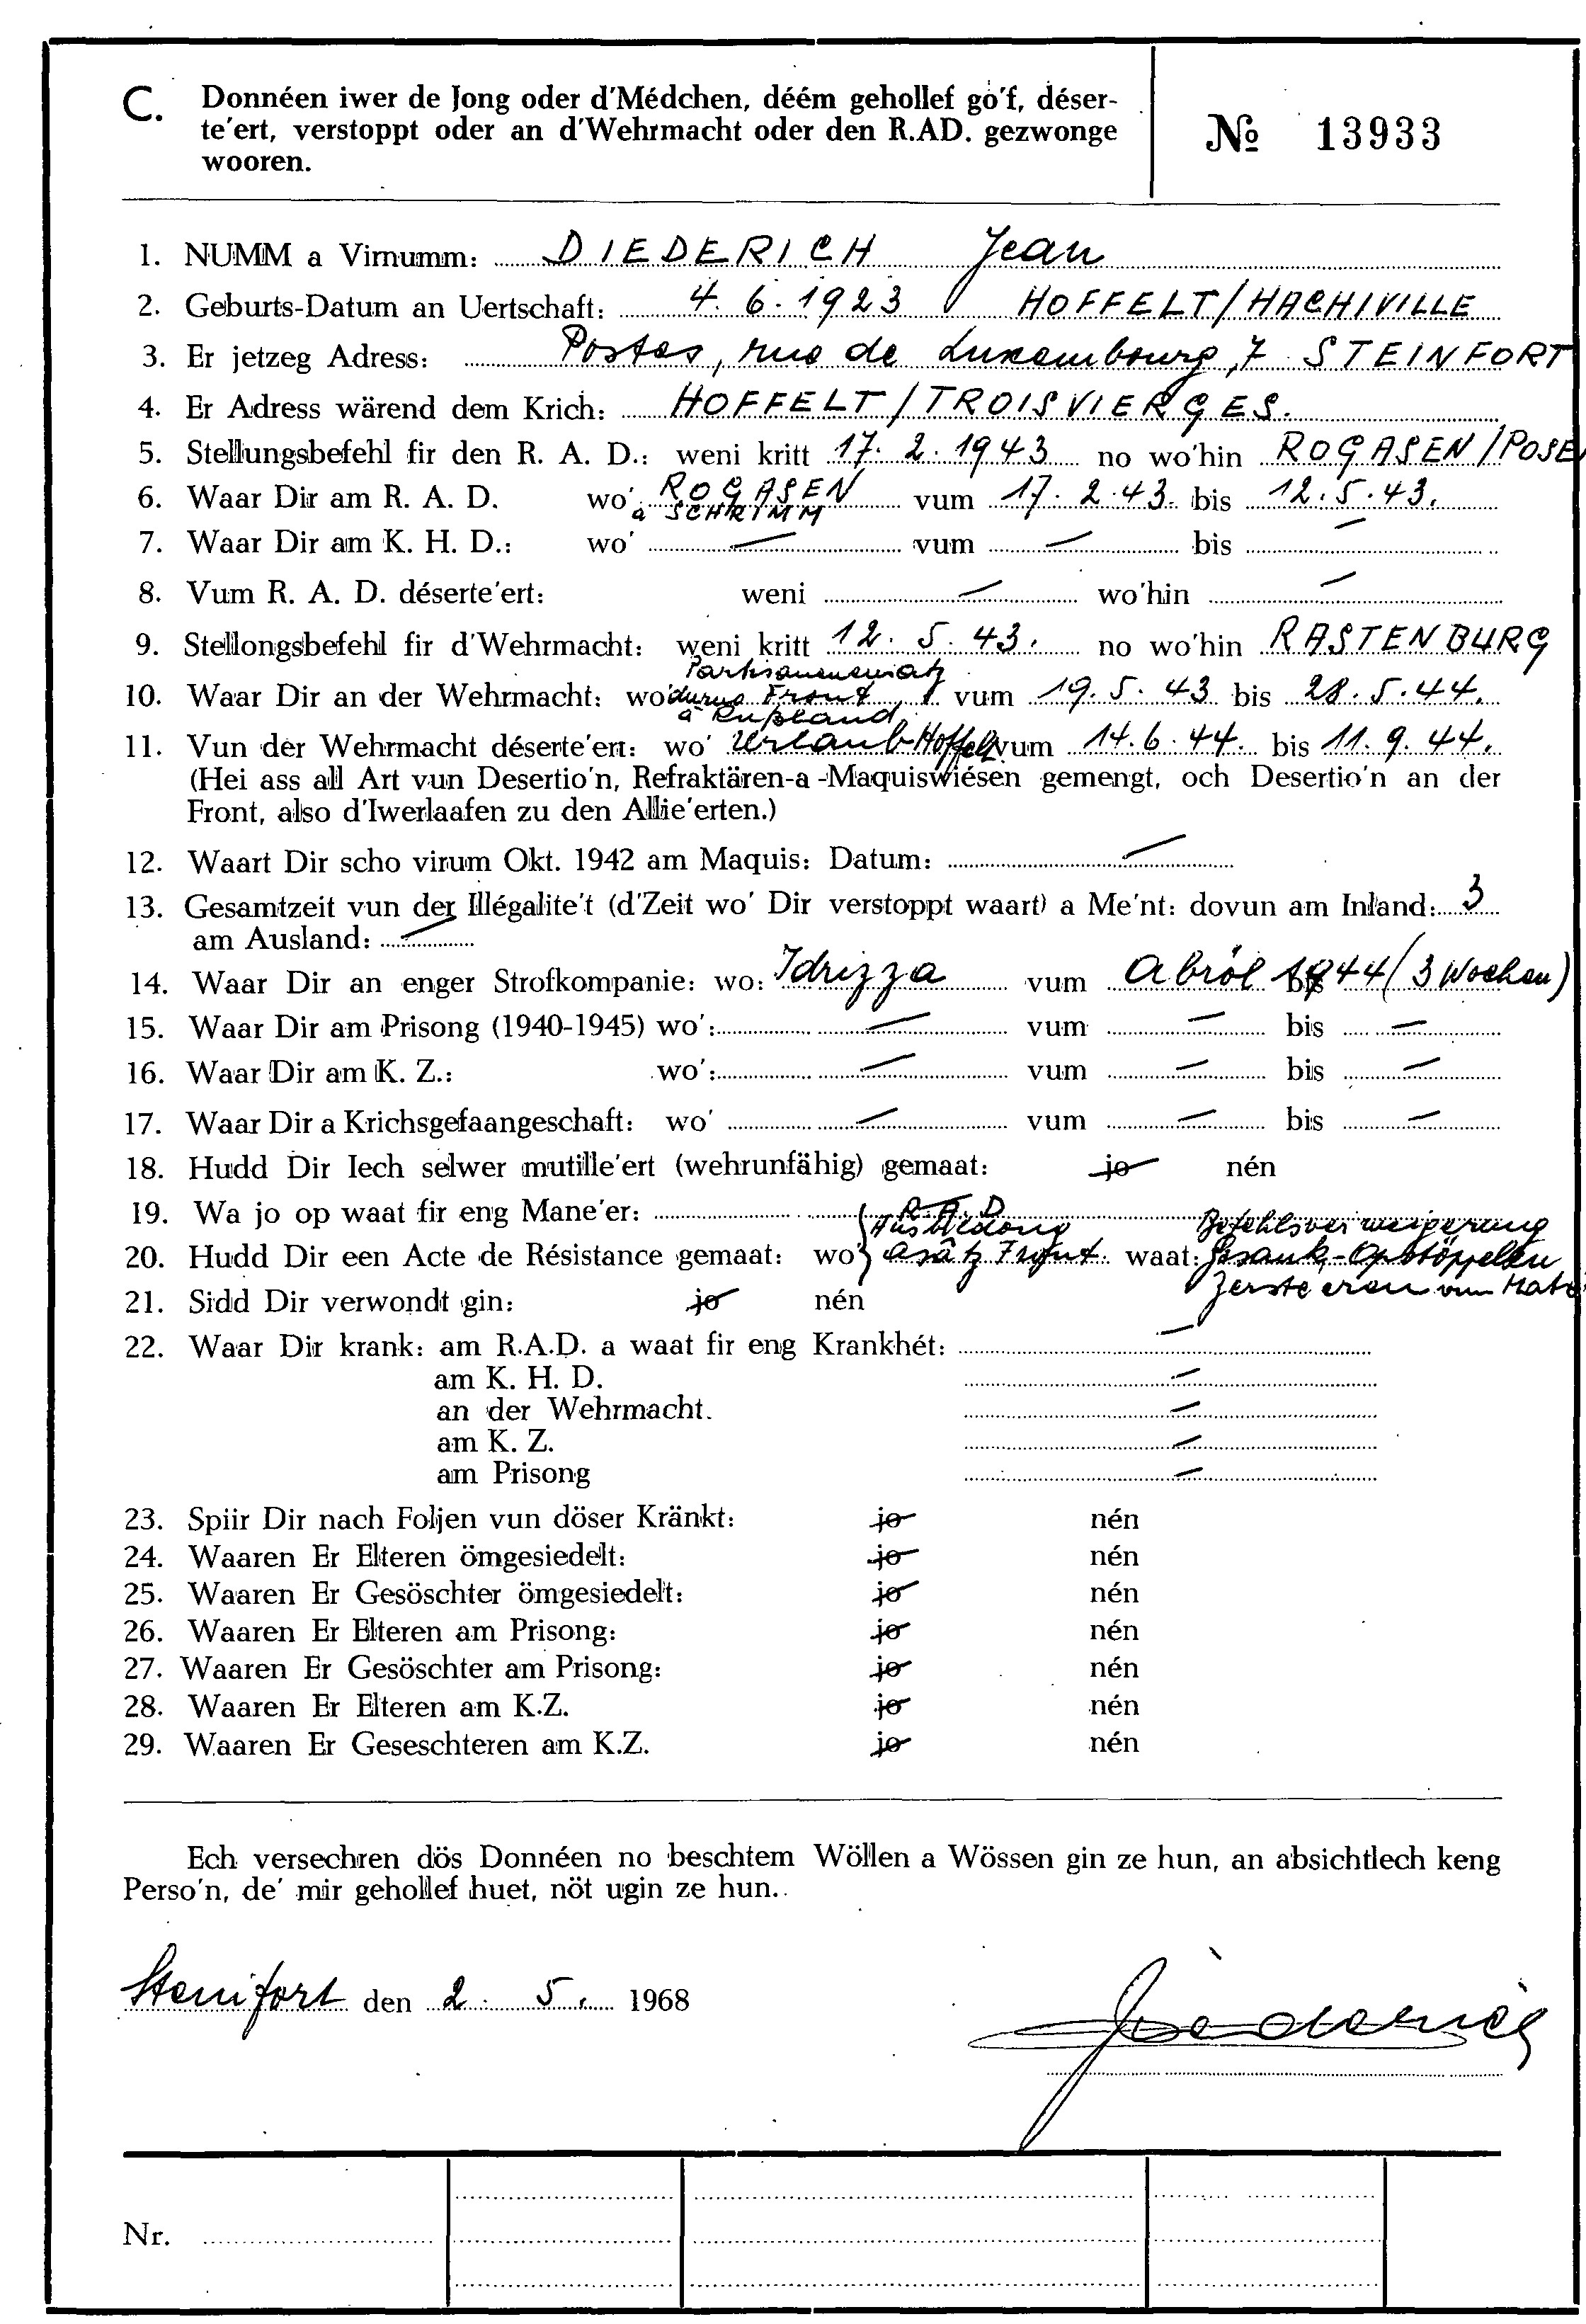 C. Donnéen iwer de Jong oder d'Médchen, déém gehollef go'f, déser-
te'ert, verstoppt oder an d'Wehrmacht oder den R.AD. gezwonge
wooren.
№ 13933
1. NUMM a Virnumm: DIEDERICH Jean
2. Geburts-Datum an Uertschaft: 4.6.1923 HOFFELT/HACHIVILLE
3. Er jetzeg Adress: Postes, rue de Luxembourg, 7 STEINFORT
4. Er Adress wärend dem Krich: HOFFELT/TROISVIERGES.
5. Stellungsbefehl fir den R. A. D.: weni kritt 17.2.1943 no wo'hin ROGASEN/POSEN
6. Waar Dir am R. A. D. wo' ROGASEN a SCHRIMM vum 17.2.43. bis 12.5.43.
7. Waar Dir am K. H. D.: wo' — vum — bis —
8. Vum R. A. D. déserte'ert: weni — wo'hin —
9. Stellongsbefehl fir d'Wehrmacht: weni kritt 12.5.43. no wo'hin RASTENBURG
Partisaneneinsatz
10. Waar Dir an der Wehrmacht: wo' Front vum 19.5.43 bis 28.5.44.
a Rußland
11. Vun der Wehrmacht déserte'ert: wo' Urlaub-Hoffelt vum 14.6.44. bis 11.9.44.
(Hei ass all Art vun Desertio'n, Refraktären-a -Maquiswiésen gemengt, och Desertio'n an der
Front, also d'Iwerlaafen zu den Allie'erten.)
12. Waart Dir scho virum Okt. 1942 am Maquis: Datum: —
13. Gesamtzeit vun der Illégalite't (d'Zeit wo' Dir verstoppt waart) a Me'nt: dovun am Inland: 3
am Ausland: —
14. Waar Dir an enger Strofkompanie: wo: Idrizza vum Abröl bis 1944 (3 Wochen)
15. Waar Dir am Prisong (1940-1945) wo': — vum — bis —
16. Waar Dir am K. Z.: wo': — vum — bis —
17. Waar Dir a Krichsgefaangeschaft: wo' — vum — bis —
18. Hudd Dir Iech selwer mutille'ert (wehrunfähig) gemaat: jo nén
19. Wa jo op waat fir eng Mane'er:
R.A.D
Ausbildong Befehlsverweigerung
20. Hudd Dir een Acte de Résistance gemaat: wo' Asatz Front waat: Gesank-Opstöppellen
Zersteeren vum Mat
21. Sidd Dir verwondt gin: jo nén
22. Waar Dir krank: am R.A.D. a waat fir eng Krankhét: —
am K. H. D. —
an der Wehrmacht. —
am K. Z. —
am Prisong —
23. Spiir Dir nach Foljen vun döser Kränkt: jo nén
24. Waaren Er Elteren ömgesiedelt: jo nén
25. Waaren Er Gesöschter ömgesiedelt: jo nén
26. Waaren Er Elteren am Prisong: jo nén
27. Waaren Er Gesöschter am Prisong: jo nén
28. Waaren Er Elteren am K.Z. jo nén
29. Waaren Er Geseschteren am K.Z. jo nén
Ech versechren dös Donnéen no beschtem Wöllen a Wössen gin ze hun, an absichtlech keng
Perso'n, de' mir gehollef huet, nöt ugin ze hun.
Steinfort den 2. 5. 1968
Diederich
Nr.